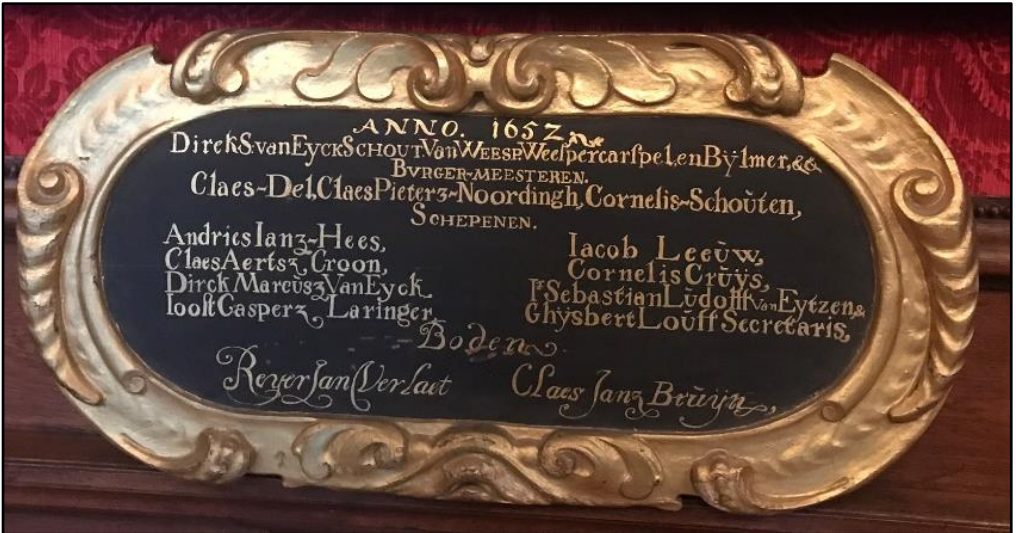 ANNO. 1652
Dirck S. van Eyck SCHOUT Van WEESP, Weespercarspel, en Bÿlmer, &c
BVRGER-MEESTEREN.
Claes-Del, Claes Pieterz-Noordingh, Cornelis-Schoŭten,
SCHEPENEN.
Andries Ianz-Hees,
Claes Aertsz, Croon,
Dirck Marcŭsz Van Eyck
Ioost Casperz, Laringer,
Iacob Leeŭw,
Cornelis Crŭÿs,
Jr Sebastian Lŭdolff van Eytzen, &
Ghÿsbert Loŭff Secretaris,
Boden.
Reyer Jans Verlaet
Claes Janz Brŭijn,